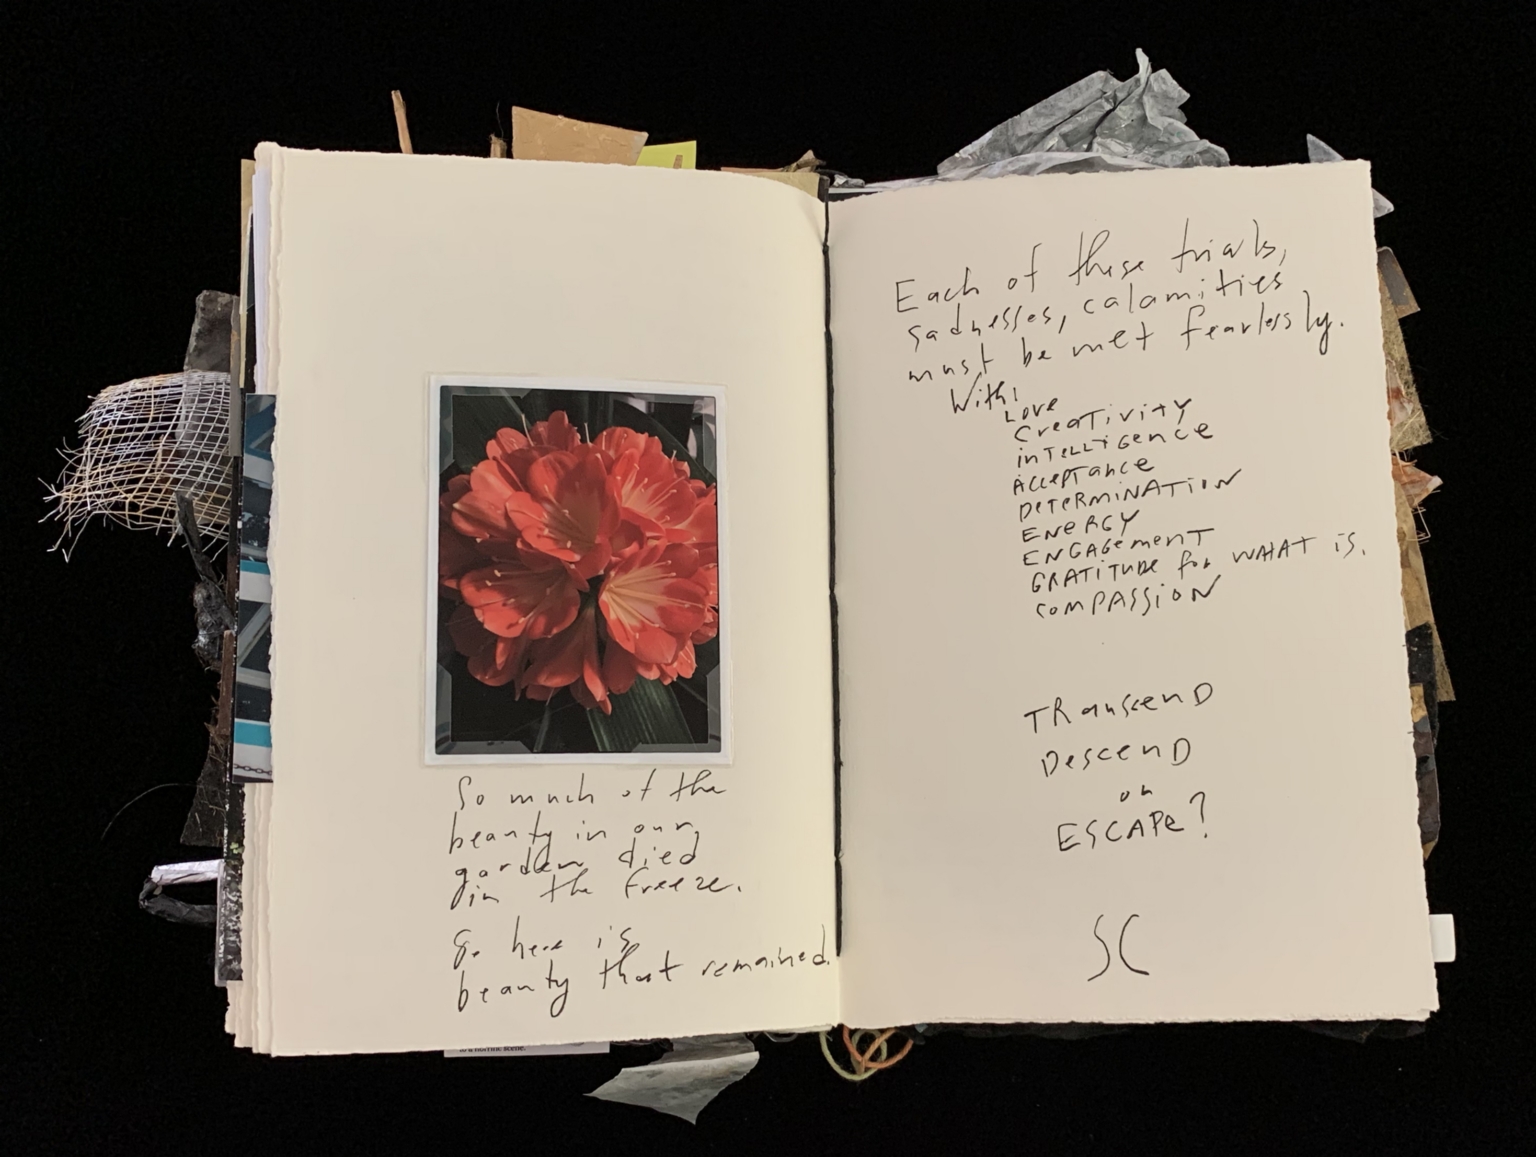 So much of the
beauty in our
garden died
in the freeze.
So here is
beauty that remained.
Each of these trials,
sadnesses, calamities
must be met fearlessly.
With:
Love
Creativity
intelligence
Acceptance
DETERMINATION
ENERGY
ENGAGEMENT
GRATITUDE for WHAT is.
COMPASSION
TRanscenD
DescenD
or
ESCAPe?
SC